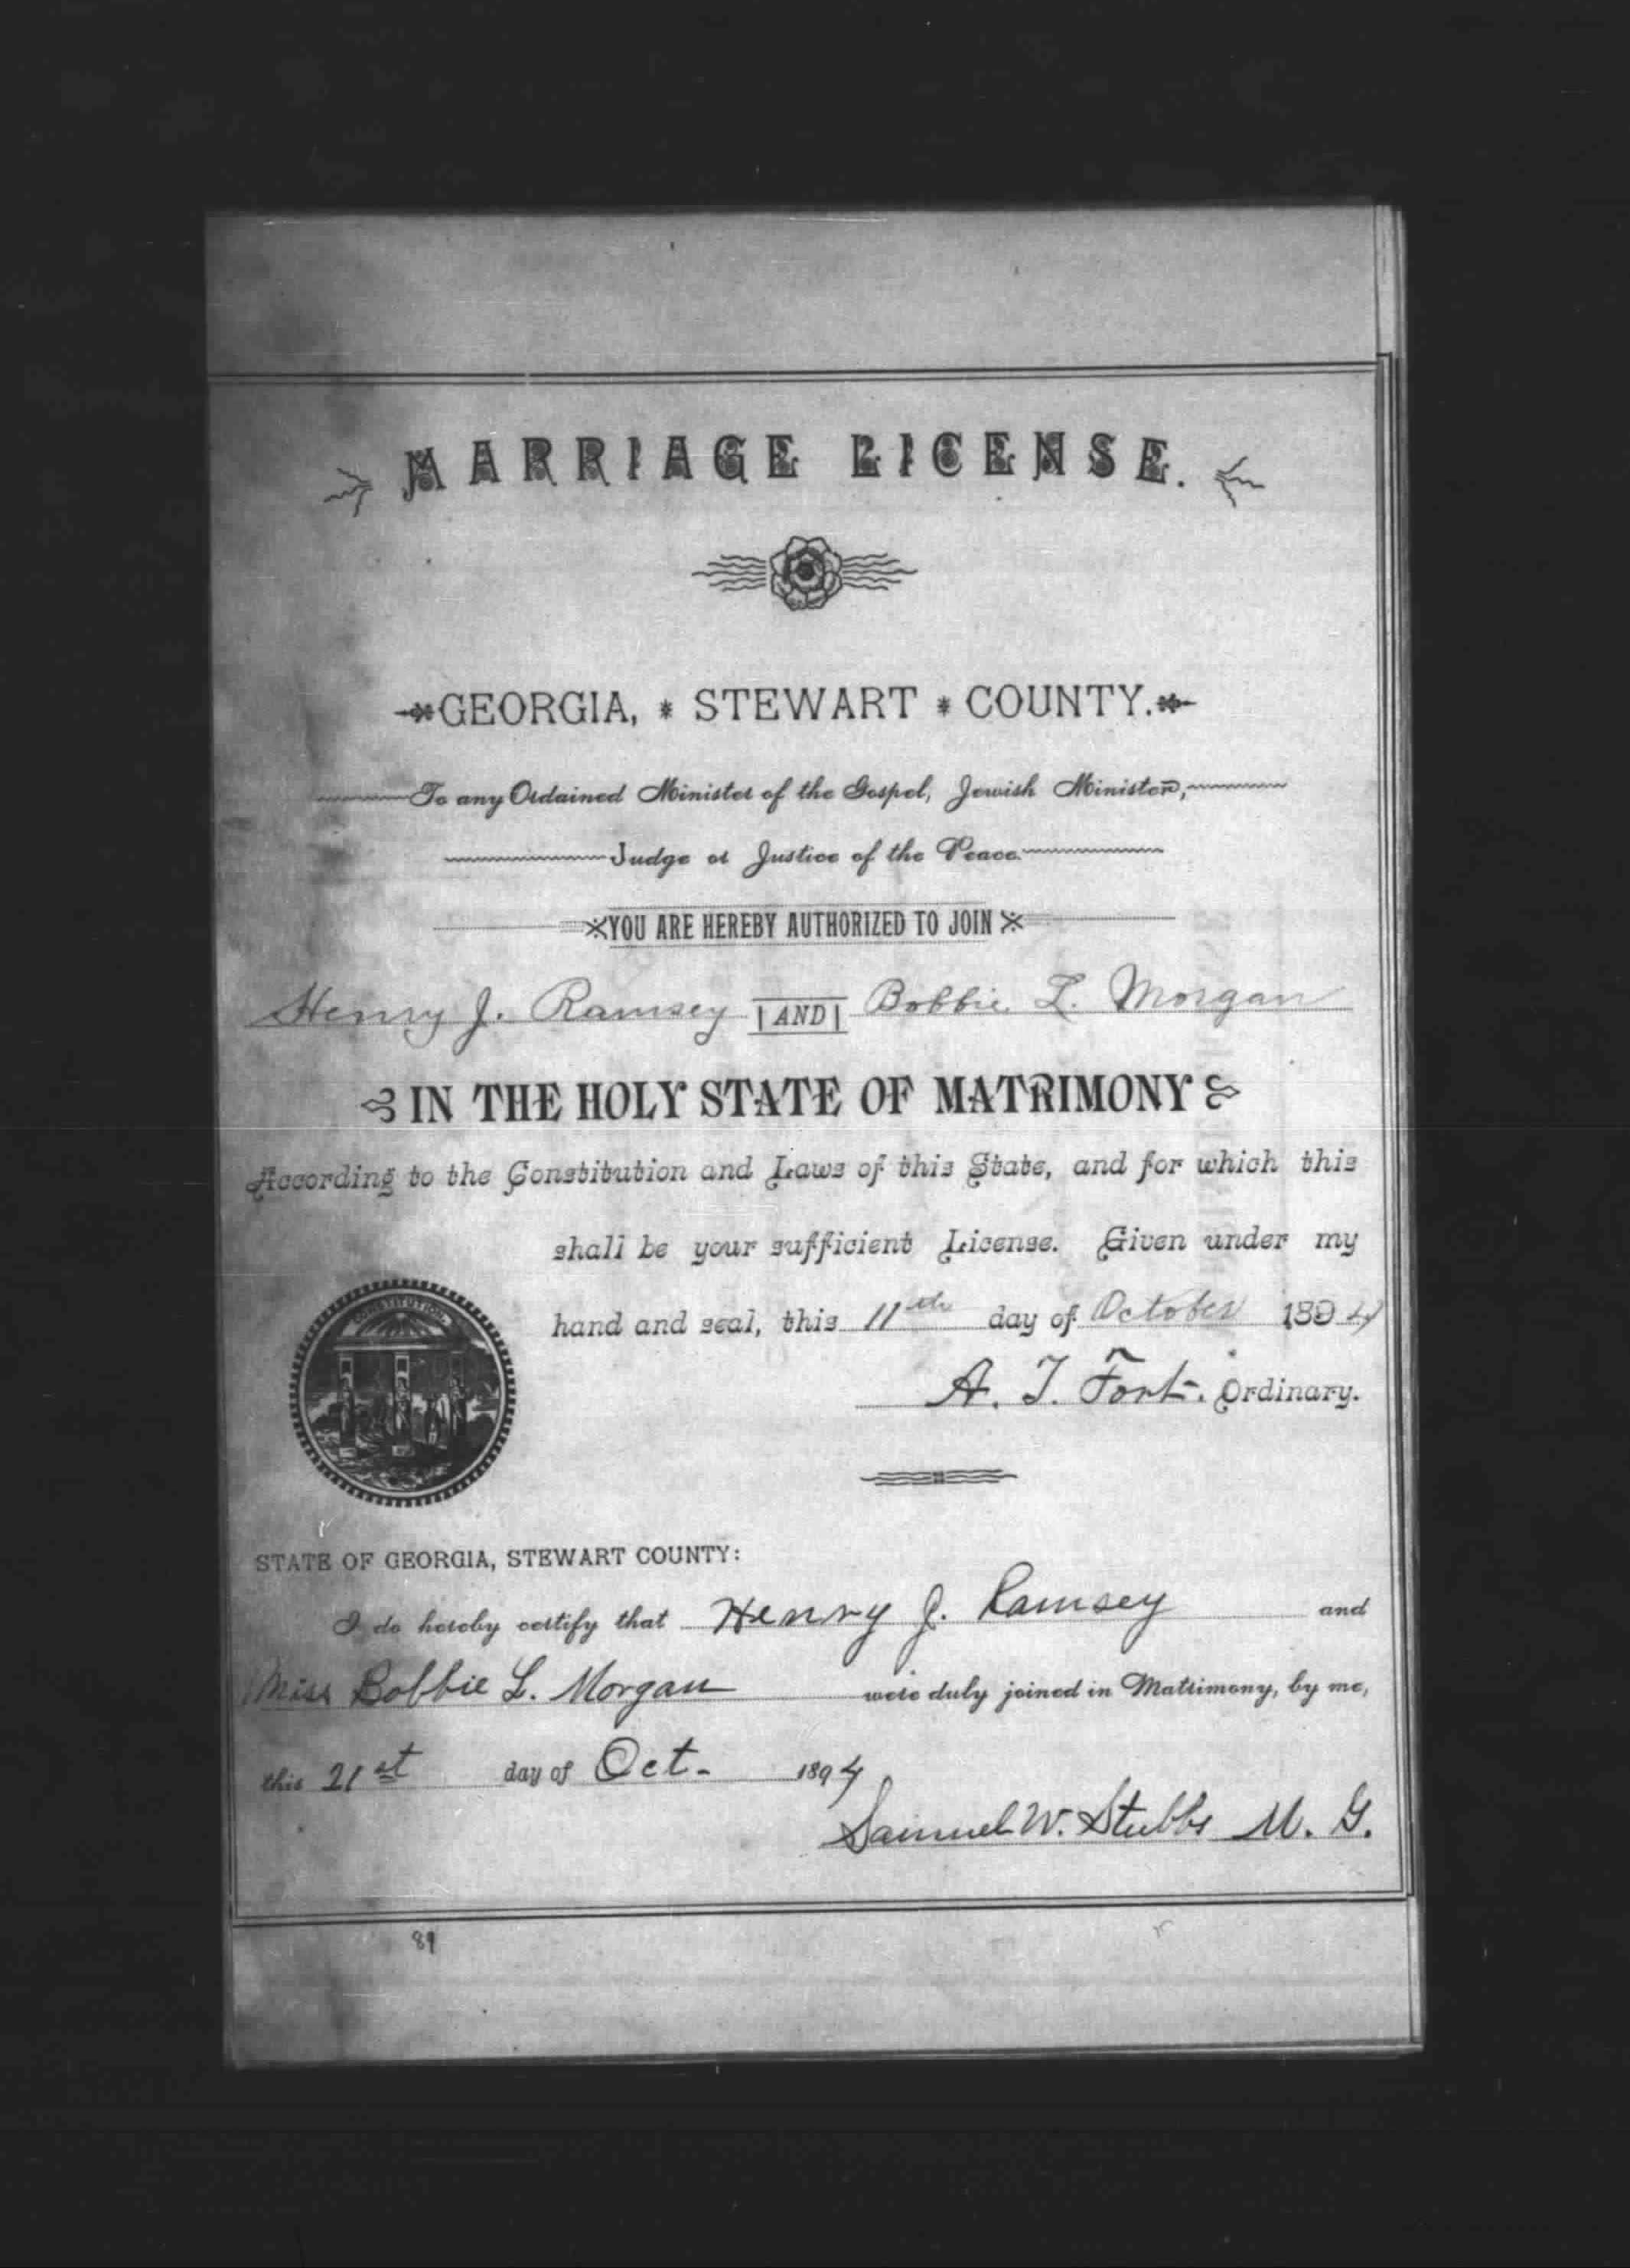 MARRIAGE LICENSE.
GEORGIA, * STEWART * COUNTY.
To any Ordained Minister of the Gospel, Jewish Minister,
Judge or Justice of the Peace.
YOU ARE HEREBY AUTHORIZED TO JOIN
Henry J. Ramsey AND Bobbie L. Morgan
IN THE HOLY STATE OF MATRIMONY
According to the Constitution and Laws of this State, and for which this
shall be your sufficient License. Given under my
hand and seal, this 11th day of October 1894
A. T. Fort. Ordinary.
CONSTITUTION
STATE OF GEORGIA, STEWART COUNTY:
I do hereby certify that Henry J. Ramsey and
Miss Bobbie L. Morgan were duly joined in Matrimony, by me,
this 21st day of Oct. 1894
Samuel W. Stubbs M. G.
89